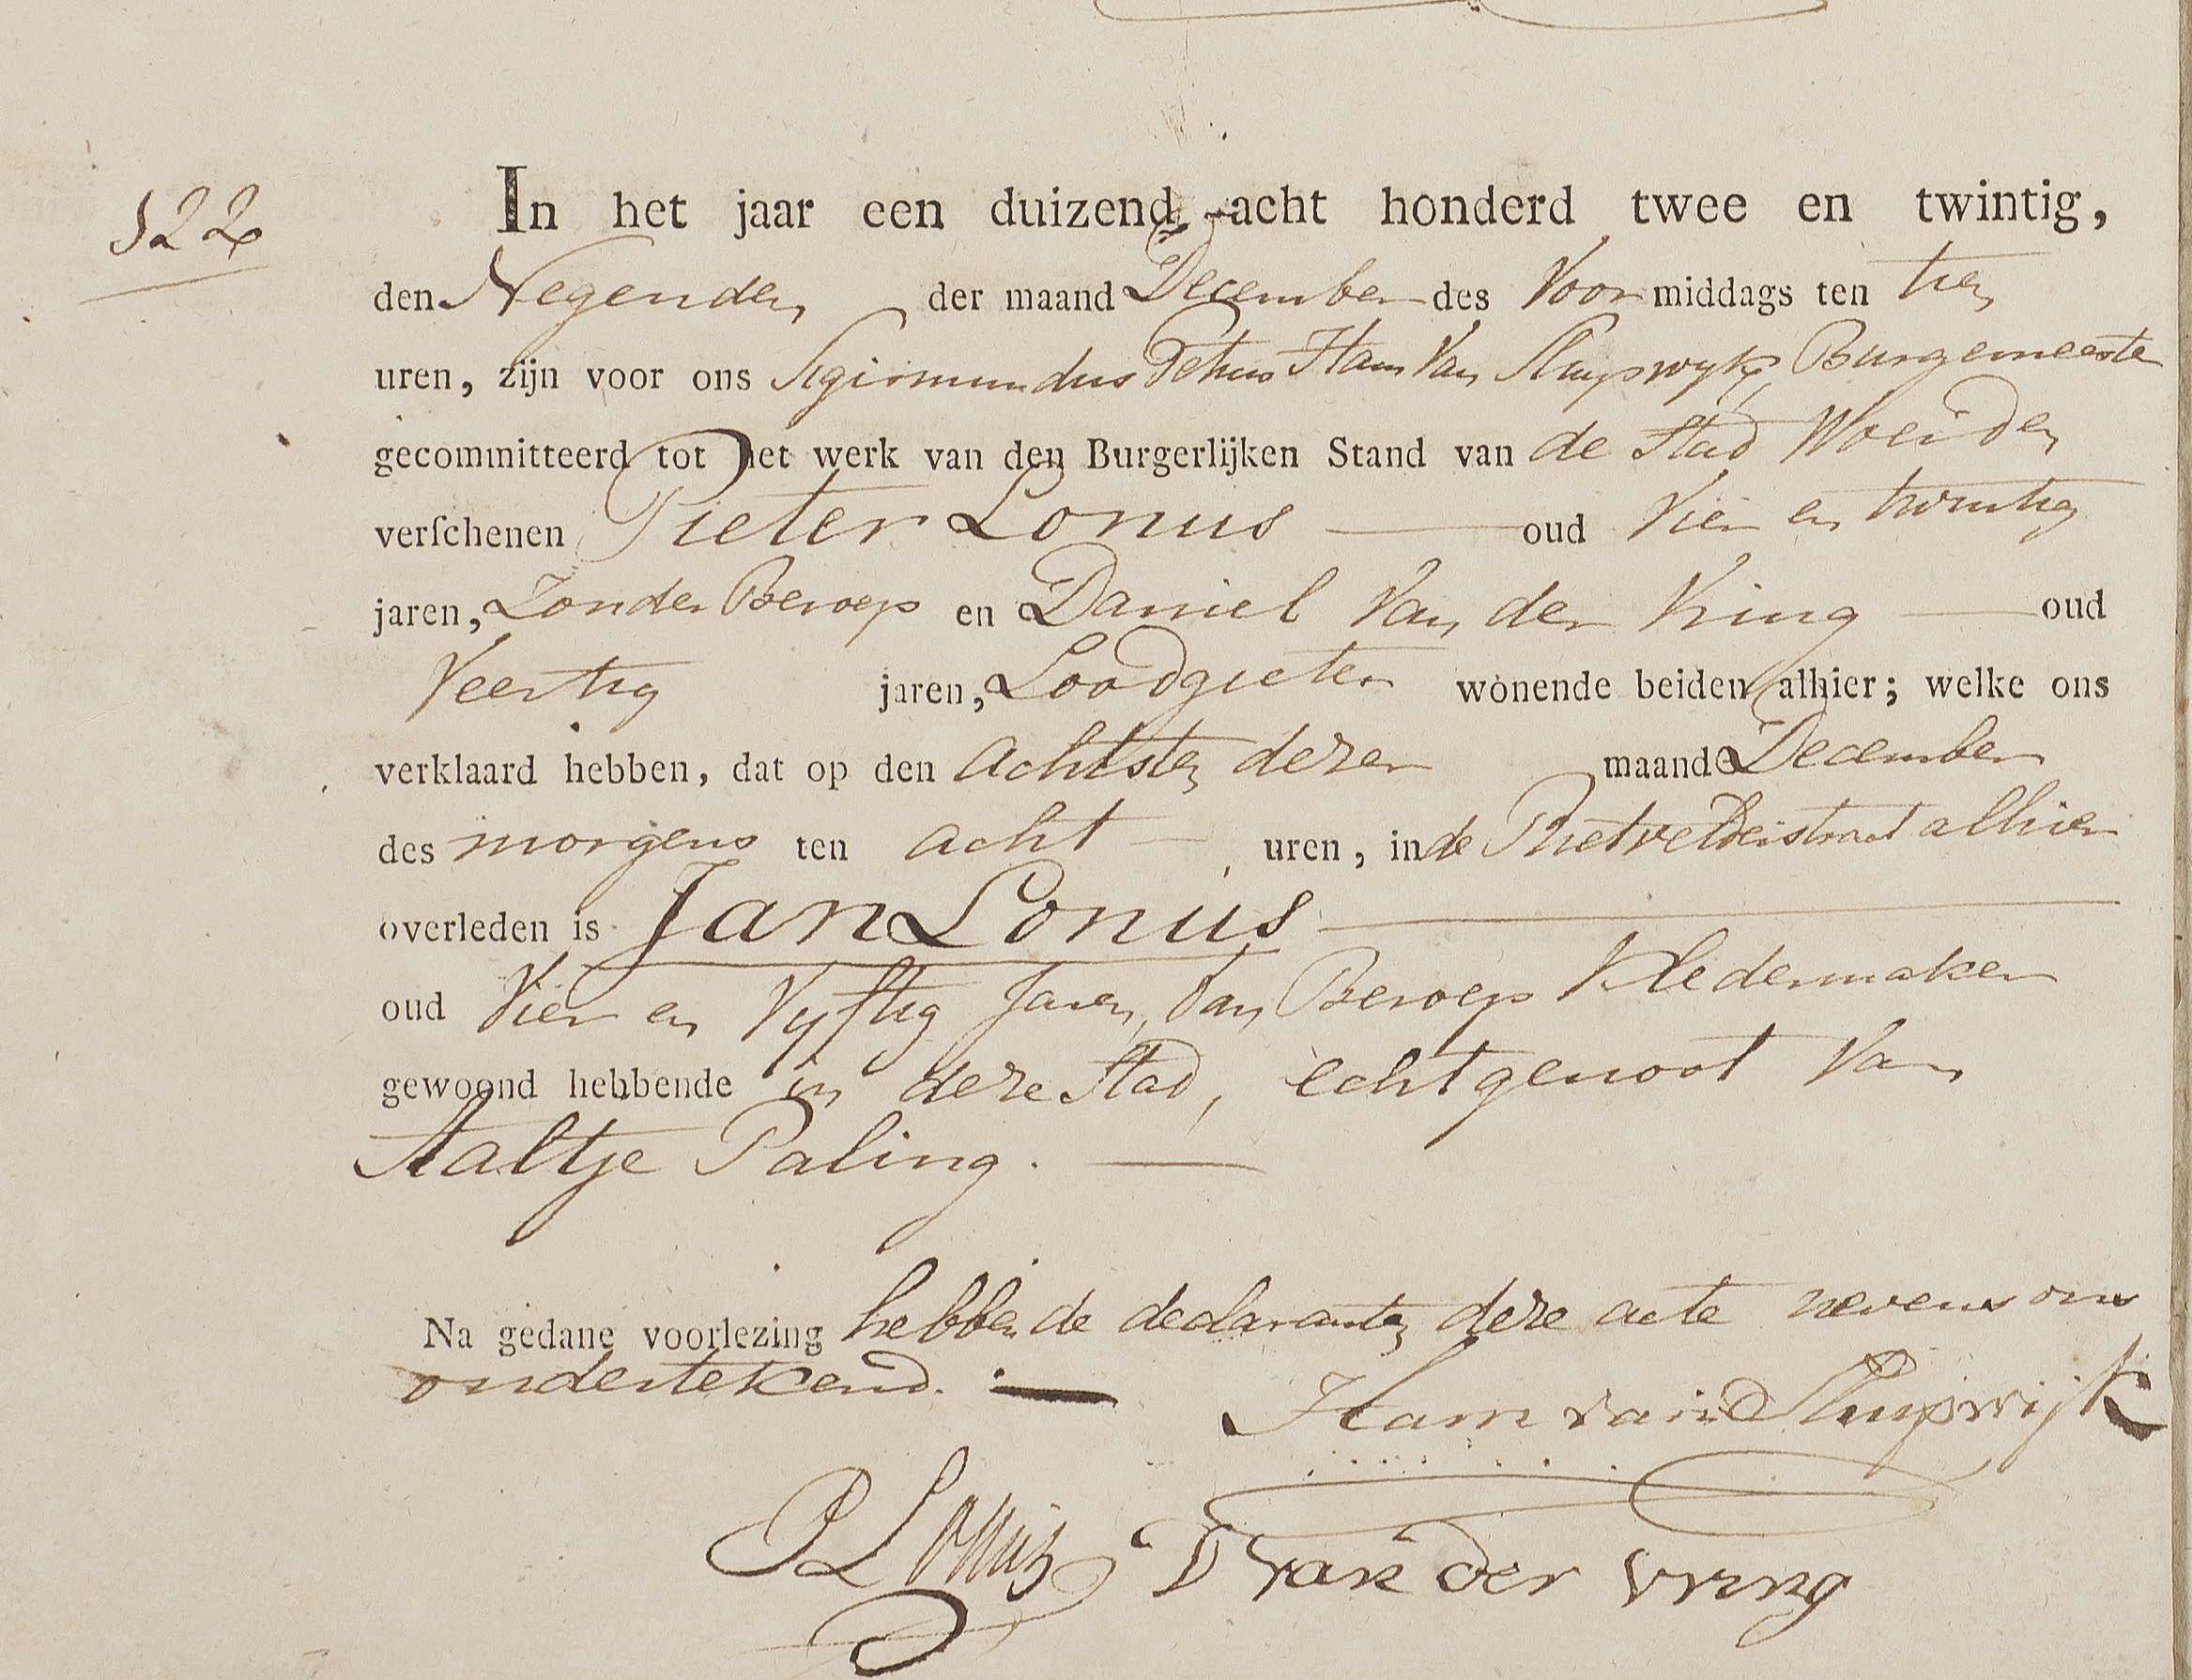 122
In het jaar een duizend acht honderd twee en twintig,
den Negenden der maand December des Voor middags ten tien
uren, zijn voor ons Sigismundus Petrus Ham Van Sluyswyk, Burgemeester
gecommitteerd tot het werk van den Burgerlijken Stand van de Stad Woerden
verschenen Pieter Lonus oud Vier en twintig
jaren, Zonder Beroep en Daniel Van der Vring oud
Veertig jaren, Loodgieter wonende beiden alhier; welke ons
verklaard hebben, dat op den Achtsten dezer maand December
des morgens ten acht uren, in de Rietveldseistraat alhier
overleden is Jan Lonus
oud Vier en Vyftig Jaren, Van Beroep Kledermaker
gewoond hebbende in deze Stad, echtgenoot Van
Aaltje Paling.
Na gedane voorlezing hebben de declaranten deze acte nevens ons
ondertekend.
Ham van Sluijswijk
P Lonus D van der Vring